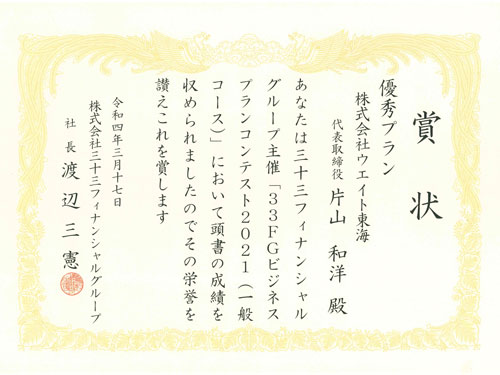 賞状
優秀プラン
株式会社ウエイト東海
代表取締役 片山 和洋 殿
あなたは三十三フィナンシャル
グループ主催「33FGビジネス
プランコンテスト2021（一般
コース）」において頭書の成績を
収められましたのでその栄誉を
讃えこれを賞します
令和四年三月十七日
株式会社三十三フィナンシャルグループ
社長 渡辺三憲